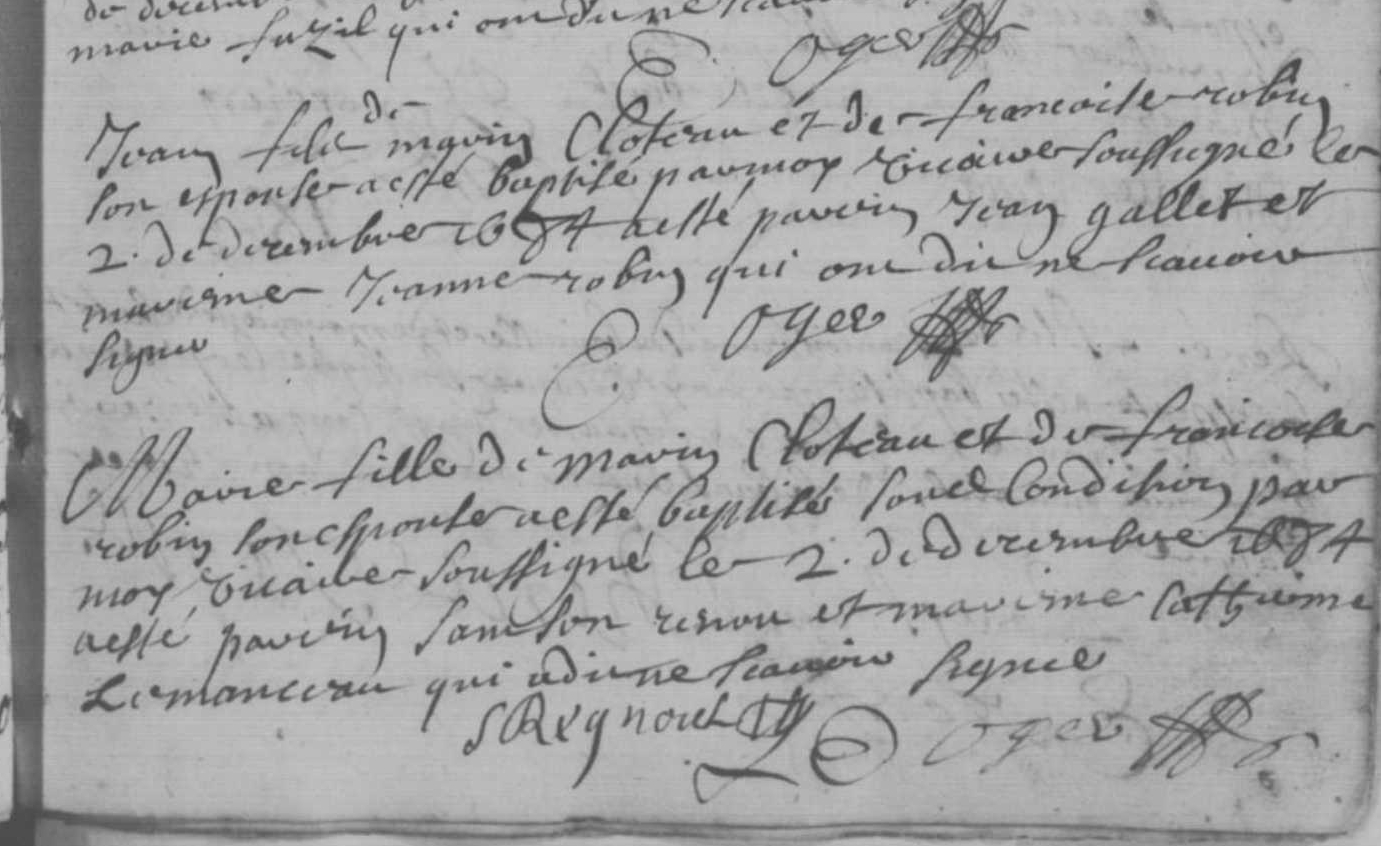 de decembre
marie fuzil qui ont dit ne scauoir
Oger
Jean fils de marin Cloteau et de francoise robin
son espouse a esté baptisé par moy vicaire soussigné le
2. de decembre 1674 a esté parrin Jean gallet et
marrine Jeanne robin qui ont dit ne scauoir
signer
Oger
Marie fille de marin Cloteau et de francoise
robin son espouse a esté baptisée soubs Condition par
moy vicaire soussigné le 2. de decembre 1674
a esté parrin samson renou et marrine Catherine
Lemanceau qui a dit ne scauoir signer
S Regnoul
Oger